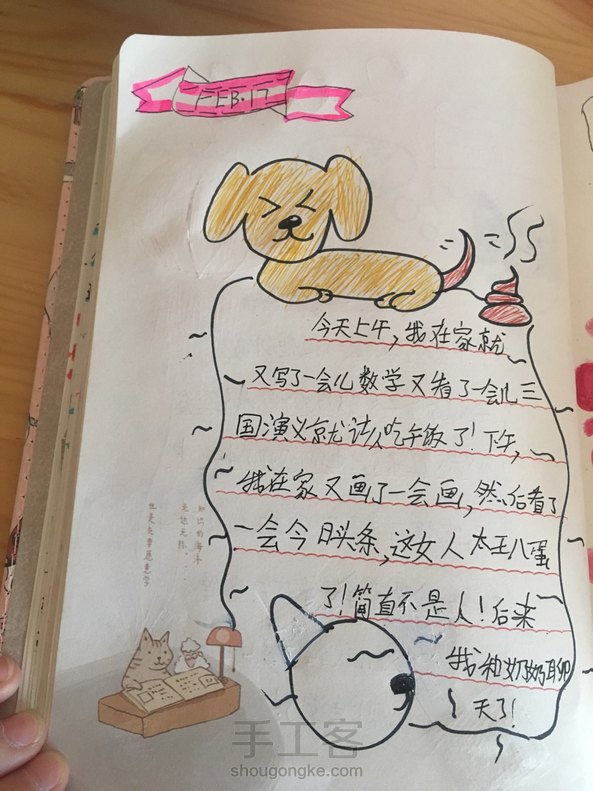 FEB.17
今天上午,我在家就
又写了一会儿数学又看了一会儿三
国演义就该吃午饭了!下午,
我在家又画了一会画,然后看了
一会今日头条,这女人太王八蛋
了!简直不是人!后来
我和奶奶聊
天了!
知识的海洋
无边无际,
但是先要愿意学
手工客
shougongke.com